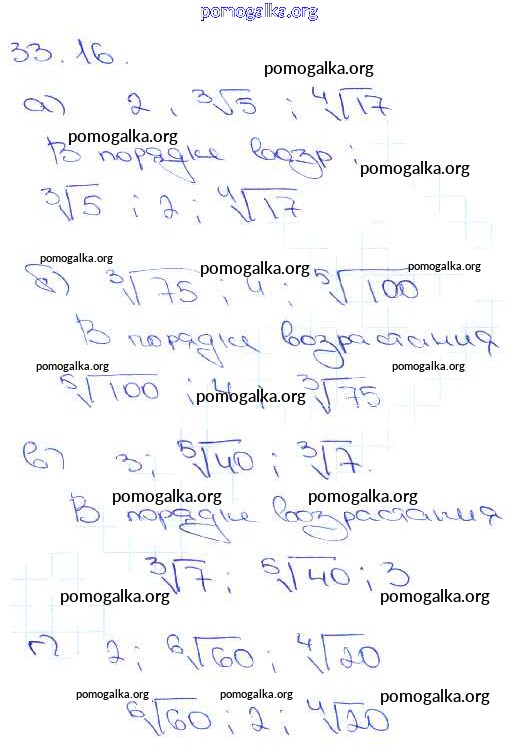 pomogalka.org
33.16.
pomogalka.org
а) 2, ∛5; ∜17
pomogalka.org
В порядке возр;
pomogalka.org
∛5; 2; ∜17
pomogalka.org pomogalka.org pomogalka.org
б) ∛75; 4; ⁵√100
В порядке возрастания
pomogalka.org pomogalka.org
⁵√100; 4; ∛75
pomogalka.org
в) 3; ⁵√40; ∛7.
pomogalka.org pomogalka.org
В порядке возрастания
∛7; ⁵√40; 3
pomogalka.org pomogalka.org
г) 2; ⁶√60; ∜20
pomogalka.org pomogalka.org pomogalka.org
⁶√60; 2; ∜20